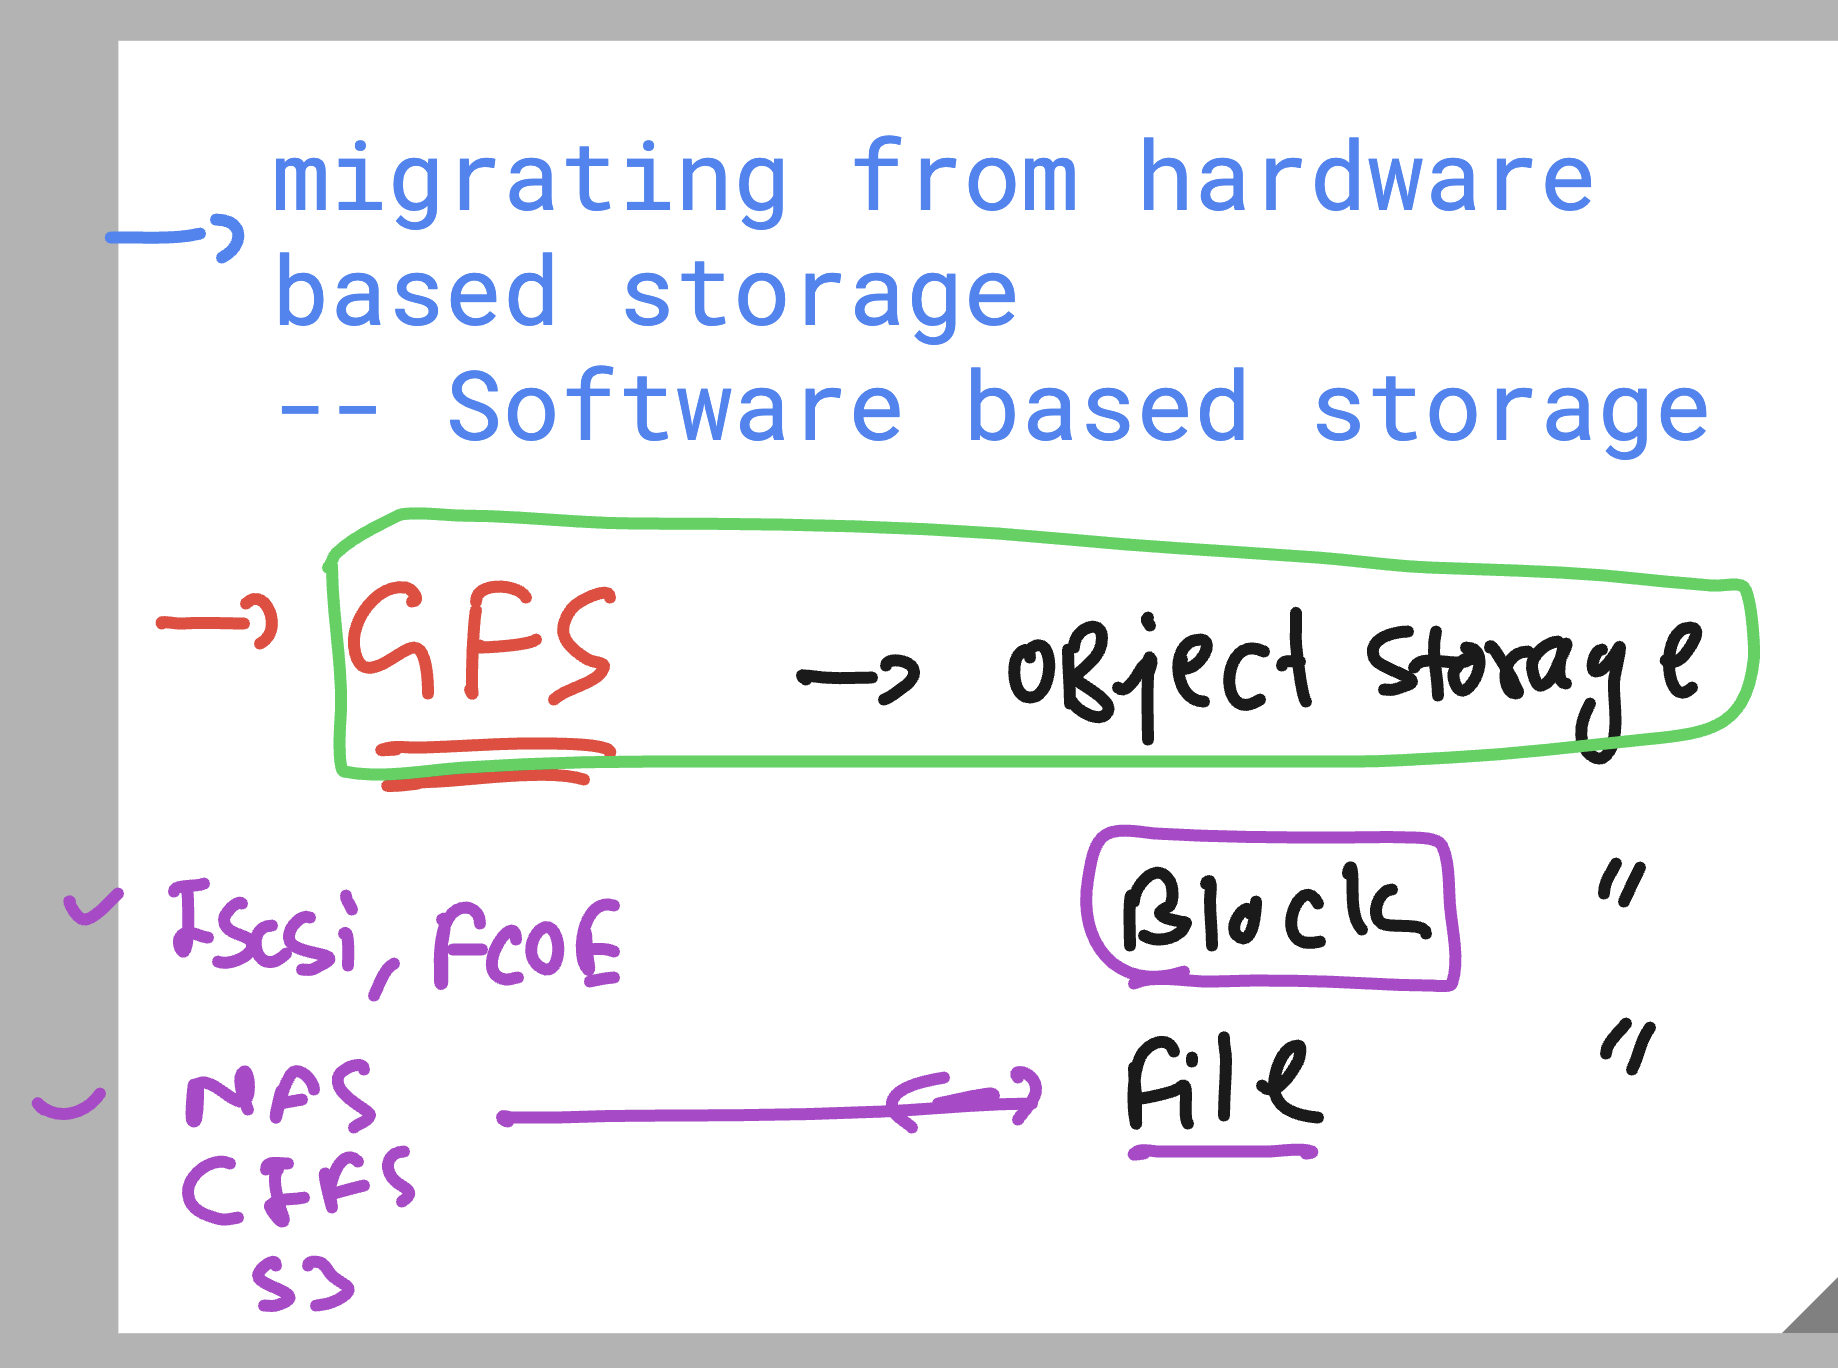 migrating from hardware
based storage
-- Software based storage
GFS → OBject storage
Block "
Iscsi, FCOE
File "
NFS
CIFS
S3